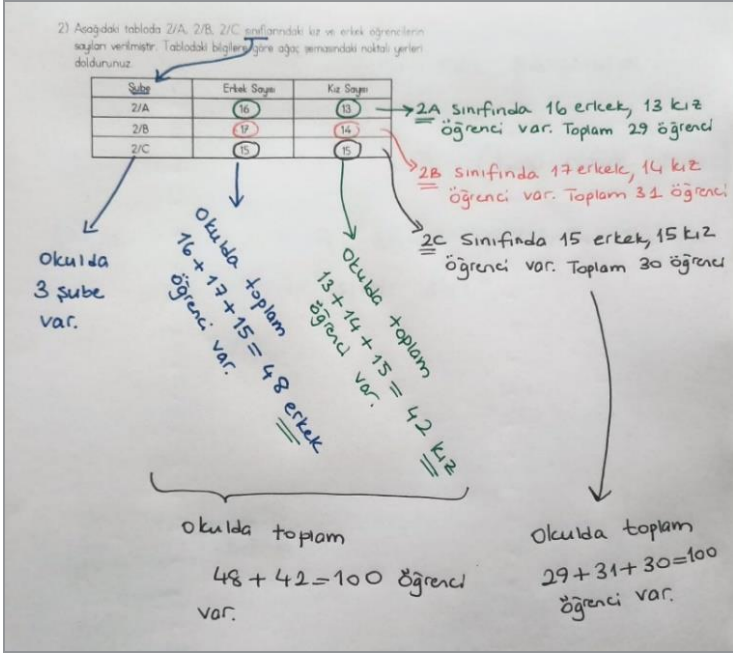 2) Aşağıdaki tabloda 2/A, 2/B, 2/C sınıflarındaki kız ve erkek öğrencilerin
sayıları verilmiştir. Tablodaki bilgilere göre ağaç şemasındaki noktalı yerleri
doldurunuz.
Şube Erkek Sayısı Kız Sayısı
2/A 16 13
2/B 17 14
2/C 15 15
2A sınıfında 16 erkek, 13 kız
öğrenci var. Toplam 29 öğrenci
2B sınıfında 17 erkek, 14 kız
öğrenci var. Toplam 31 öğrenci
2C sınıfında 15 erkek, 15 kız
öğrenci var. Toplam 30 öğrenci
Okulda
3 şube
var.
Okulda toplam
16 + 17 + 15 = 48 erkek
öğrenci var.
Okulda toplam
13 + 14 + 15 = 42 kız
öğrenci var.
Okulda toplam
48 + 42 = 100 öğrenci
var.
Okulda toplam
29 + 31 + 30 = 100
öğrenci var.